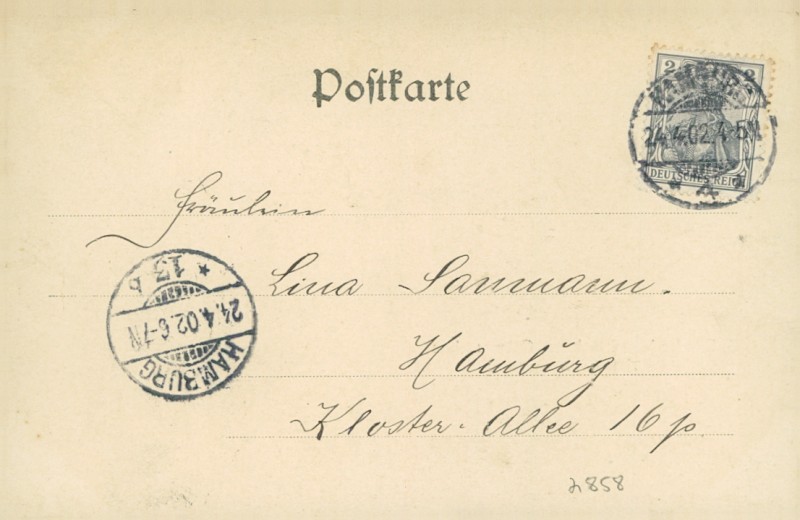 Postkarte
2 2
HAMBURG
24.4.02.4-5N
DEUTSCHES REICH
Fräulein
Lina Sanmann.
Hamburg
Kloster-Allee 16 p.
* 13 b
24.4.02.6-7N
HAMBURG
2858